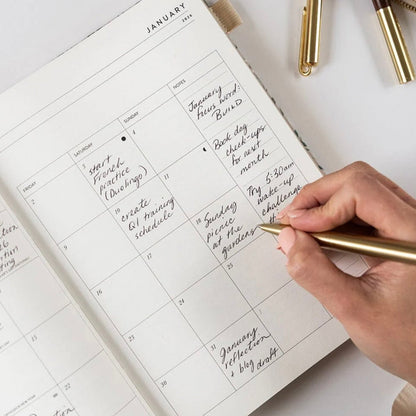 JANUARY
2026
FRIDAY
SATURDAY
SUNDAY
NOTES
2
3
start
French
practice
(Duolingo)
4
January
focus word:
BUILD
9
10
create
Q1 training
schedule
11
Book dog
check-ups
for next
month
16
17
18
Sunday
picnic
at the
gardens
Try 5:30am
wake-up
challenge
23
24
25
30
31
January
reflection
+ blog draft
22